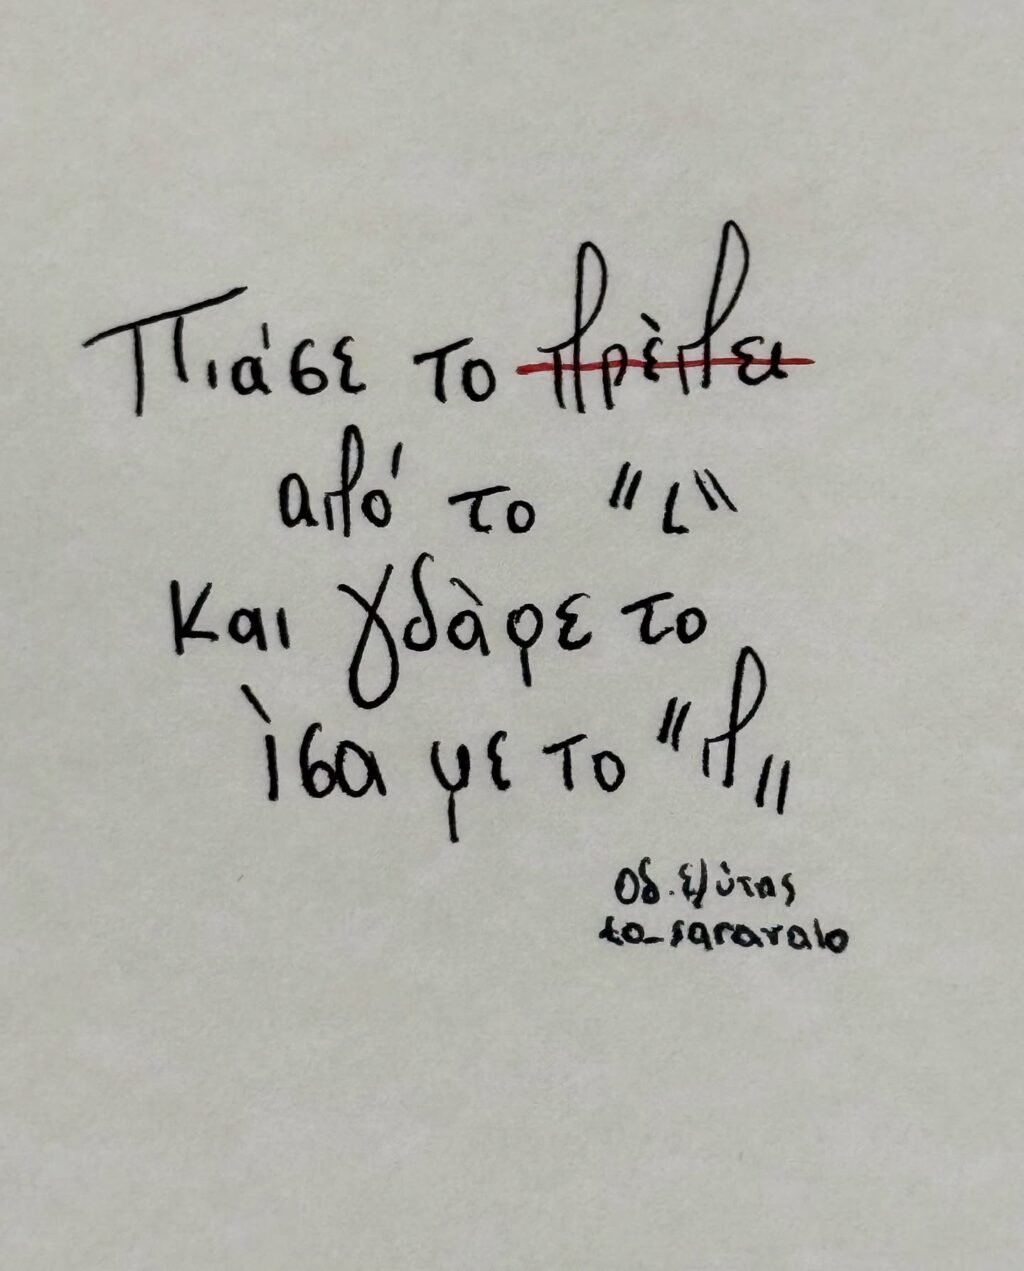 Πιάσε το πρὲπει
από το "ι"
και γδὰρε το
ὶσα με το "π"
Οδ. Ελύτης
to_saravalo